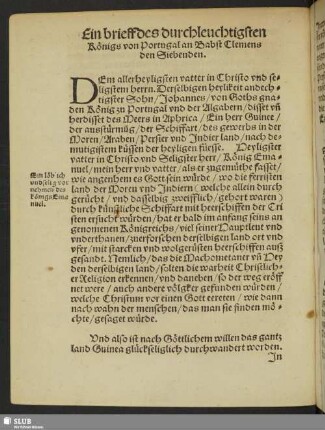 Ein brieff des durchleuchtigsten
Königs von Portugal an Babst Clemens
den Siebenden.
DEm allerheyligsten vatter in Christo vnd se-
ligstem herrn. Derselbigen heylikeit andech-
tigster Sohn / Johannes / von Goths gna-
den König zu Portugal vnd der Algarben / disset vñ
herdisset des Meers in Aphrica / Ein herr Guinee /
der ausstürmüg / der Schiffart / des gewerbs in der
Moren / Araben / Persier vnd Indier land / nach de-
mutigistem küssen der heyligen füesse. Heyligster
vatter in Christo vnd Seligster herr / König Ema-
nuel / mein herr vnd vatter / als er zugemüthe fasset /
wie angenehem es Gott sein würde / wo die fernisten
land der Moren vnd Indiern / welche allein durch
gerücht / vnd dasselbig zweifflich / gehort waren /
durch künstliche Schiffart mit heerschifften der Cri
sten ersucht würden / hat er bald im anfang seins an
genomenen Königreichs / viel seiner Hauptleut vnd
vnderthanen / zuerforschen derselbigen land ort vnd
vfer / mit starcken vnd wolgerüsten heerschiffen auß
gesant. Nemlich / das die Machometaner vñ Hey
den derselbigen land / solten die warheit Christlich-
er Religion erkennen / vnd daneben / so der weg eröff
net were / auch andere völgker gefunden würden /
welche Christum vor einen Gott erreten / wie dann
nach wahn der menschen / das man sie finden möch-
te / gesaget würde.
Ein löblich
vnd selig vor
nehmen des
königs Ema
nuel.
Vnd also ist nach Göttlichem willen das gantz
land Guinea glückseliglich durchwandert worden.
In
SLUB